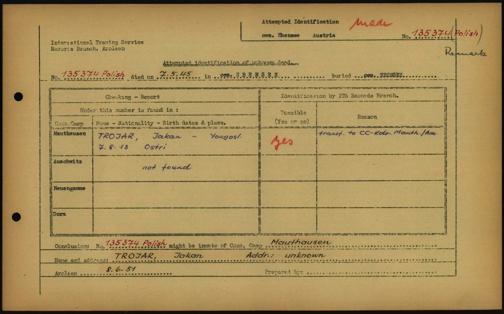 Attempted Identification made
cem. Ebensee Austria
No. 135374 (Polish)
Remarks
International Tracing Service
Records Branch, Arolsen
Attempted identification of unknown dead.
No. 135374 Polish died on 7.5.45 in cem. EBENSEE buried cem. EBENSEE.
Checking - Report
Identification by ITS Records Branch.
Under this number is found in :
Possible (Yes or no)
Reason
Conc.Camp Name - Nationality - Birth dates & place.
Mauthausen TROJAR, Jakan - Yougosl. Yes transf. to CC-Kdo. Mauth/
7.8.13 Ostri
Auschwitz not found
Neuengamme
Dora
Conclusion: No. 135374 Polish might be inmate of Conc. Camp Mauthausen
Name and address: TROJAR, Jakan Addr.: unknown
Arolsen 8.6.51 Prepared by: